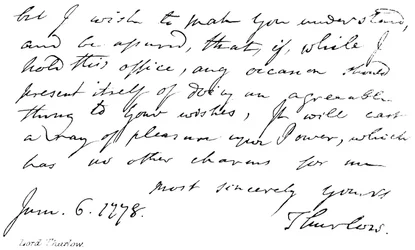 but I wish to make you understand,
and be assured, that, if, while I
hold this office, any occasion should
present itself of doing an agreeable
thing to your wishes, It will cast
a ray of pleasure upon Power, which
has no other charms for me
most sincerely yours
Jun. 6. 1778.
Thurlow.
Lord Thurlow.